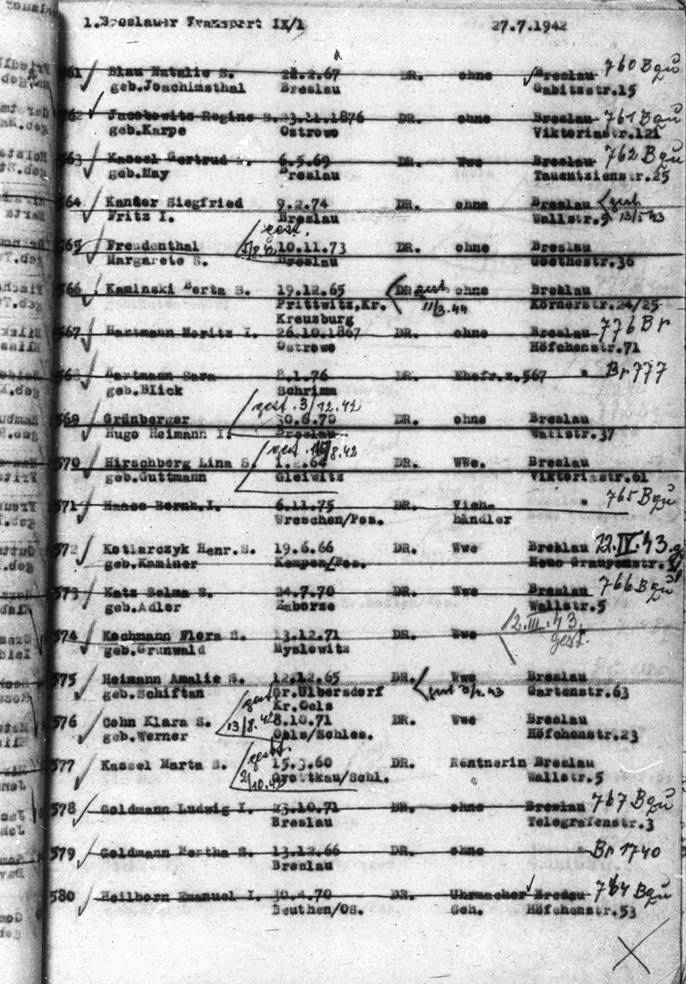 1.Breslauer Transport IX/1 27.7.1942
561 Blau Natalie S. 28.2.67 DR. ohne Breslau 760 Bqu
geb.Joachimsthal Breslau Gabitzstr.15
562 Jacobowitz Regine S. 23.11.1876 DR. ohne Breslau 761 Bqu
geb.Karpe Ostrowo Viktoriastr.121
563 Kassel Gertrud S. 6.5.69 DR. Wwe Breslau 762 Bqu
geb.May Breslau Tauentzienstr.25
564 Kander Siegfried 9.2.74 DR. ohne Breslau gest
Fritz I. Breslau Wallstr.5 13/5 43
gest.
565 Freudenthal 5/8.42 10.11.73 DR. ohne Breslau
Margarete S. Breslau Goethestr.30
566 Kaminski Berta S. 19.12.65 DR. gest ohne Breslau
Prittwitz,Kr. 11/3.44 Körnerstr.24/25
Kreuzburg
567 Hartmann Moritz I. 26.10.1867 DR. ohne Breslau 776 Br
Ostrowo Höfchenstr.71
568 Hartmann Sara 8.1.76 DR. Ehefr.z.567 " Br 777
geb.Blick Schrimm
gest. 3/12.42
569 Grünberger 30.6.70 DR. ohne Breslau
Hugo Heimann I. Breslau Wallstr.37
gest. 16/8.42
570 Hirschberg Lina S. DR. Wwe. Breslau
geb.Guttmann Gleiwitz Viktoriastr.61
571 Haase Bernh.I. 6.11.75 DR. Vieh- " 765 Bqu
Wreschen/Pos. händler
572 Kotlarczyk Henr.S. 19.6.66 DR. Wwe Breslau 12.IV.43.g
geb.Kaminer Kempen/Pos. Neue Graupenstr.
573 Katz Selma S. 24.7.70 DR. Wwe Breslau 766 Bqu
geb.Adler Zaborze Wallstr.5
574 Kochmann Flora S. 13.12.71 DR. Wwe 12.III.43.
geb.Grunwald Myslowitz gest.
575 Heimann Amalie S. 12.12.65 DR. Wwe Breslau
geb.Schiftan Gr.Ulbersdorf gest Gartenstr.63
gest Kr.Oels
576 Cohn Klara S. 13/8.42 8.10.71 DR. Wwe Breslau
geb.Werner Oels/Schles. Höfchenstr.23
gest.
577 Kassel Marta S. 15.3.60 DR. Rentnerin Breslau
2/10.42 Grottkau/Schl. Wallstr.5
578 Goldmann Ludwig I. 23.10.71 DR. ohne Breslau 767 Bqu
Breslau Telegrafenstr.3
579 Goldmann Bertha S. 13.12.66 DR. ohne " Br 1740
Breslau
580 Heilborn Emanuel I. 30.4.70 DR. Uhrmacher Breslau 764 Bqu
Beuthen/OS. Geh. Höfchenstr.53